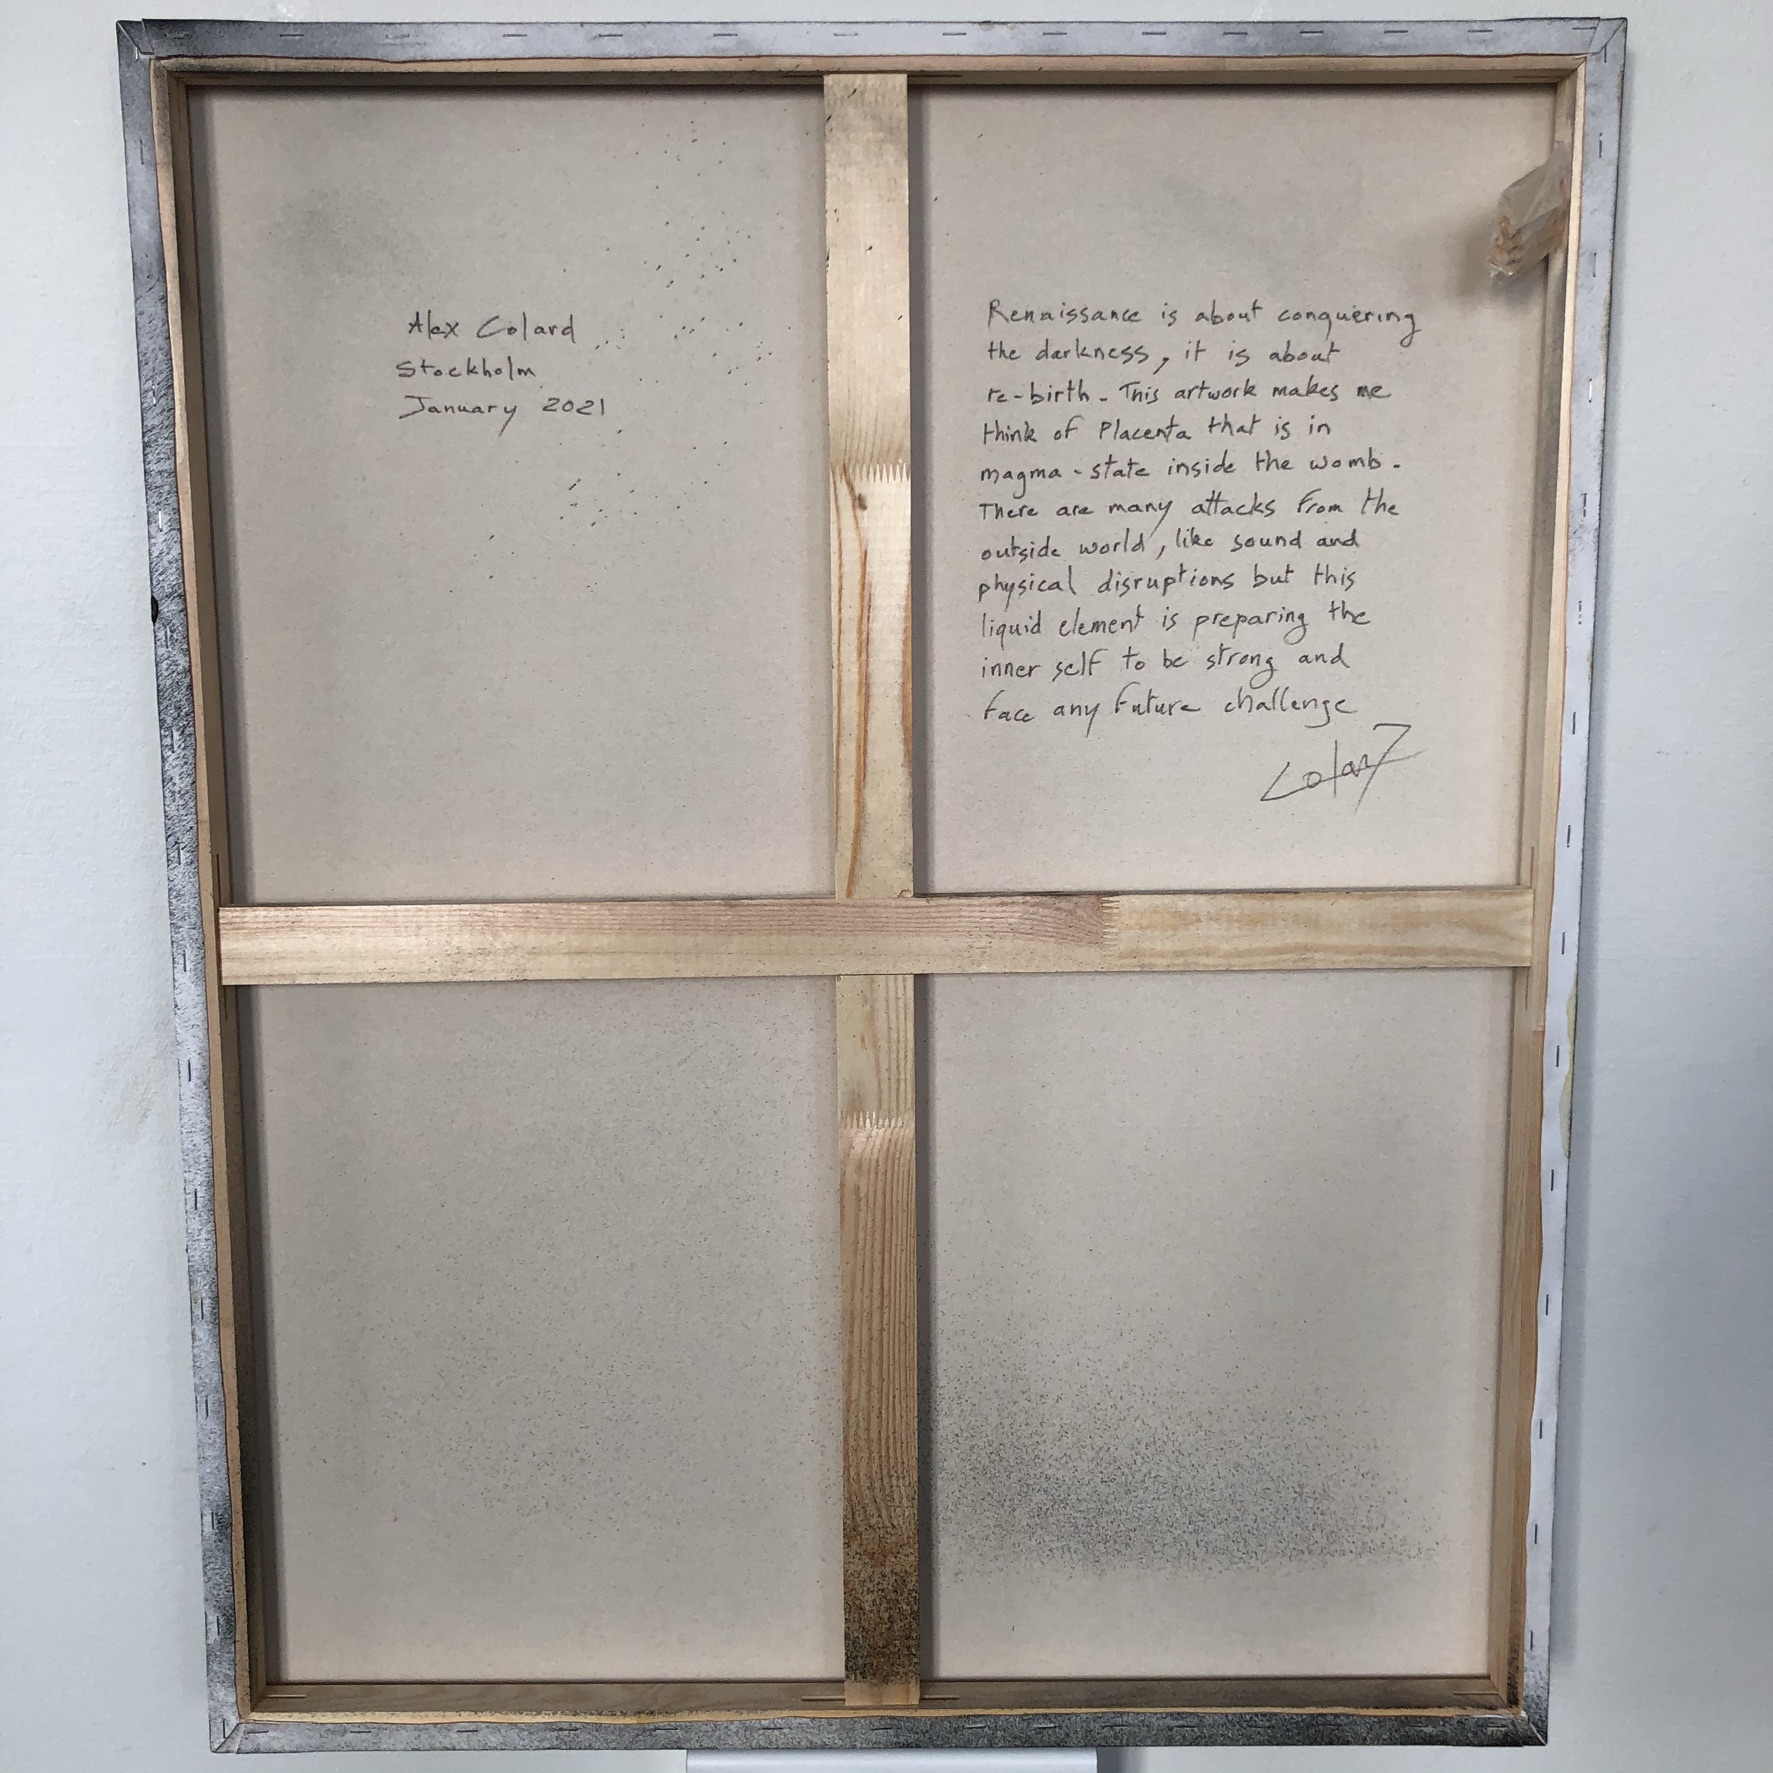 Alex Colard
Stockholm
January 2021
Renaissance is about conquering
the darkness, it is about
re-birth. This artwork makes me
think of Placenta that is in
magma-state inside the womb.
There are many attacks from the
outside world, like sound and
physical disruptions but this
liquid element is preparing the
inner self to be strong and
face any future challenge
Colard